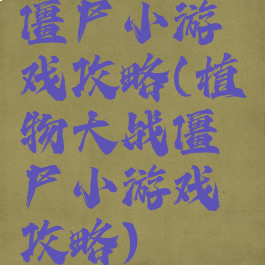 僵尸小游
戏攻略(植
物大战僵
尸小游戏
攻略)